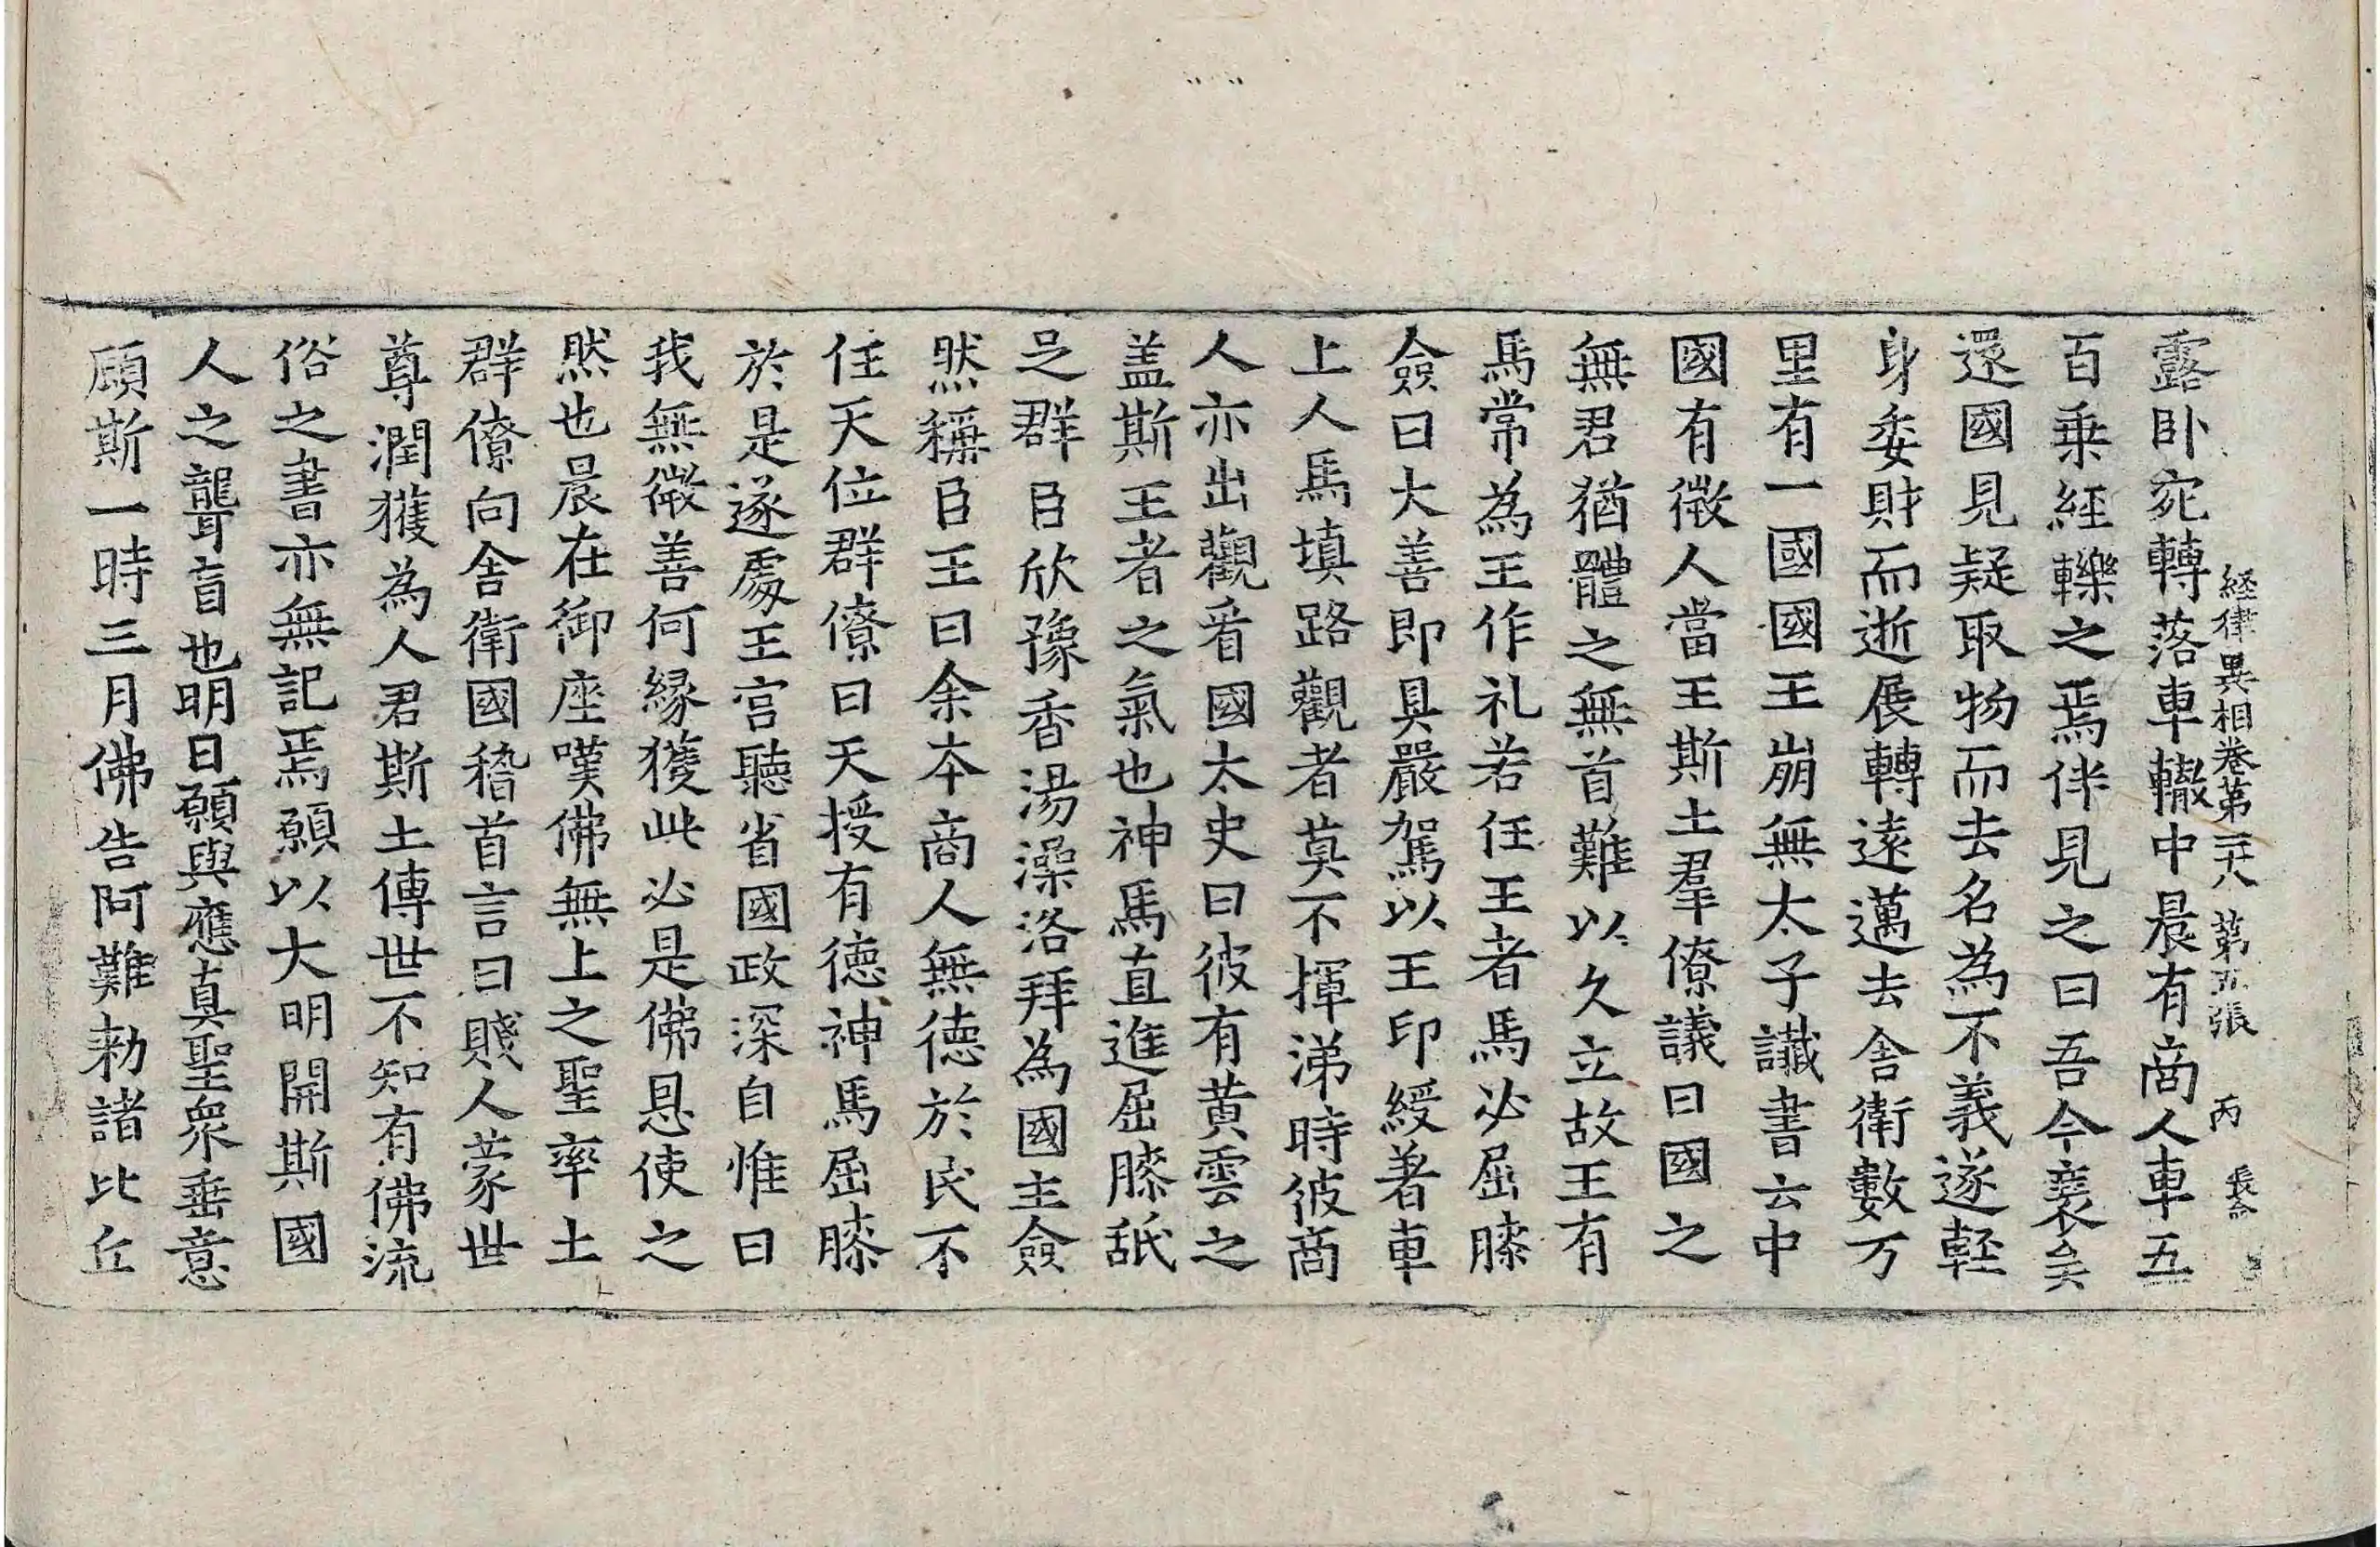 経律異相卷第二十八 第五張 丙
露卧宛轉落車轍中晨有商人車五
百乗経轢之焉伴見之曰吾今裹矣
還國見疑取物而去名為不義遂輕
身委財而逝展轉遠邁去舎衛數万
里有一國國王崩無太子讖書云中
國有徵人當王斯土羣僚議曰國之
無君猶體之無首難以久立故王有
馬常為王作礼若任王者馬必屈膝
僉曰大善即具嚴駕以王印綬著車
上人馬填路觀者莫不揮涕時彼商
人亦出觀看國太史曰彼有黄雲之
盖斯王者之氣也神馬直進屈膝舐
足群臣欣豫香湯澡洛拜為國主僉
然稱臣王曰余本商人無德於民不
任天位群僚曰天授有德神馬屈膝
於是遂處王宮聽省國政深自惟曰
我無微善何縁獲此必是佛恩使之
然也晨在御座嘆佛無上之聖率土
群僚向舎衛國稽首言曰賤人蒙世
尊潤獲為人君斯土傳世不知有佛流
俗之書亦無記焉願以大明開斯國
人之聾盲也明日願與應真聖衆垂意
顧斯一時三月佛告阿難勅諸比丘